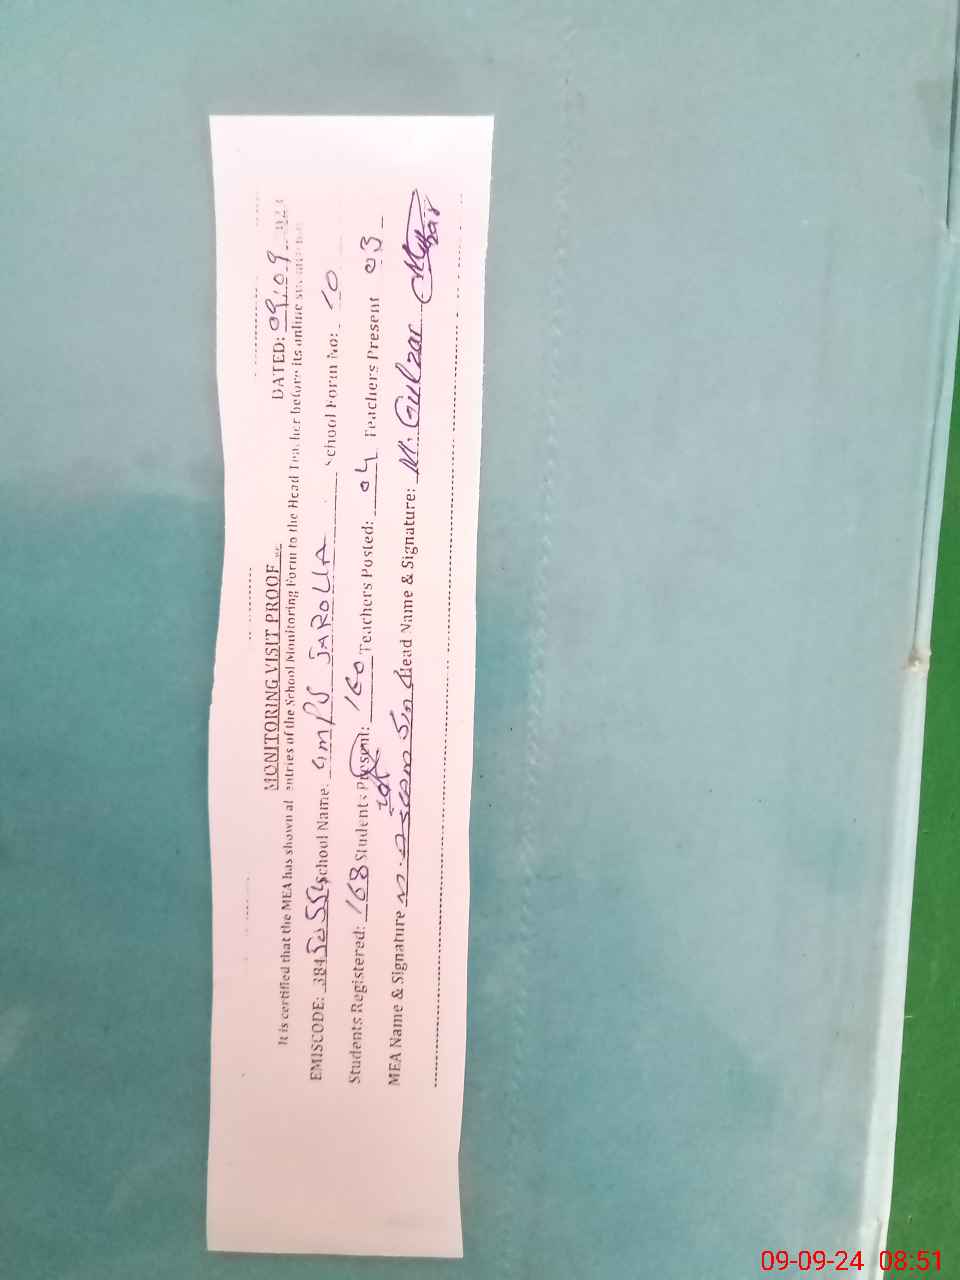 MONITORING VISIT PROOF
DATED: 09.09
It is certified that the MEA has shown al entries of the School Monitoring Form to the Head Teacher before its online
EMISCODE: 384 School Name: GMPS JAROLLA School Form No: 10
Students Registered: 168 Students Present: 160 Teachers Posted: 04 Teachers Present 03
MEA Name & Signature Head Name & Signature: M. Gulzar
09-09-24 08:51